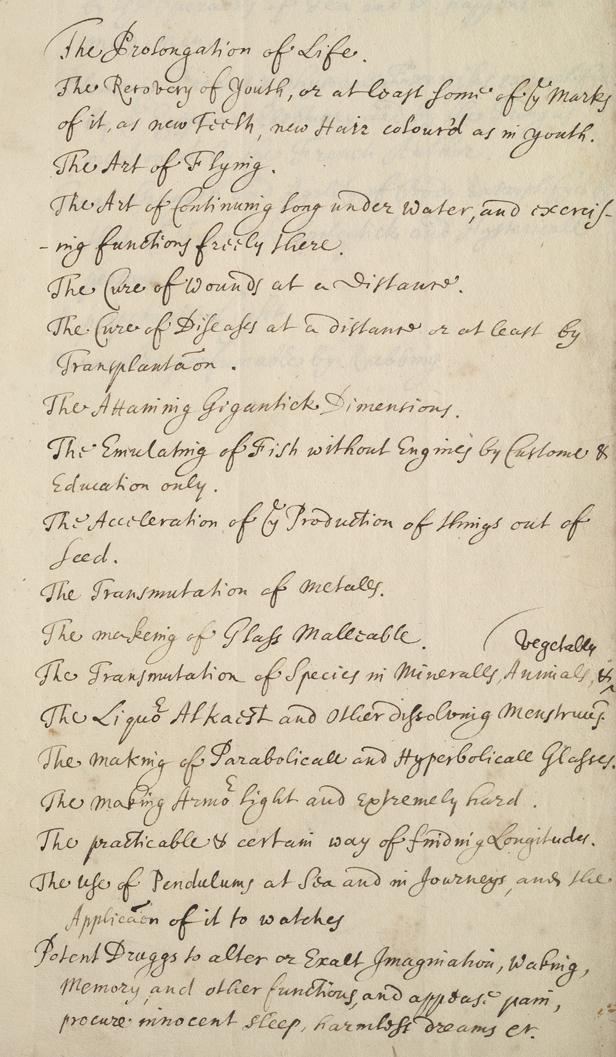 The Prolongation of Life.
The Recovery of Youth, or at least some of yᵉ Marks
of it, as new Teeth, new Hair colour'd as in youth.
The Art of Flying.
The Art of Continuing long under water, and exercis-
-ing functions freely there.
The Cure of Wounds at a Distance.
The Cure of Diseases at a distance or at least by
Transplantaõn.
The Attaining Gigantick Dimensions.
The Emulating of Fish without Engines by Custome &
Education only.
The Acceleration of yᵉ Production of things out of
Seed.
The Transmutation of Metalls.
The makeing of Glass Malleable.
(Vegetalls
The Transmutation of Species in Mineralls, Animals, &
The Liquoʳ Alkaest and other dissolving Menstruums.
The making of Parabolicall and Hyperbolicall Glasses.
The making Armoʳ light and extremely hard.
The practicable & certain way of finding Longitudes.
The use of Pendulums at Sea and in Journeys, and the
Applicaõn of it to watches
Potent Druggs to alter or Exalt Imagination, Waking,
Memory, and other functions, and appease pain,
procure innocent sleep, harmless dreams etc.